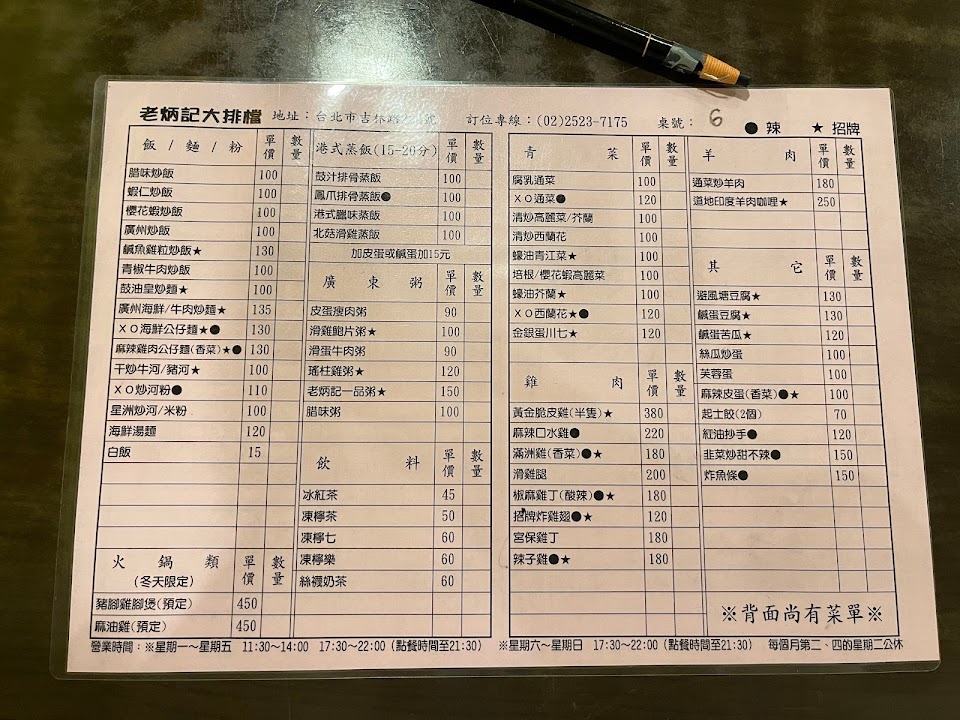 老炳記大排檔 地址：台北市吉林路 號 訂位專線：(02)2523-7175 桌號： 6 ●辣 ★招牌
飯/麵/粉 單價 數量
腊味炒飯 100
蝦仁炒飯 100
櫻花蝦炒飯 100
廣州炒飯 100
鹹魚雞粒炒飯★ 130
青椒牛肉炒飯 100
鼓油皇炒麵★ 100
廣州海鮮/牛肉炒麵★ 135
XO海鮮公仔麵★● 130
麻辣雞肉公仔麵(香菜)★● 130
干炒牛河/豬河★ 100
XO炒河粉● 110
星洲炒河/米粉 100
海鮮湯麵 120
白飯 15
火鍋類 單價 數量
(冬天限定)
豬腳雞腳煲(預定) 450
麻油雞(預定) 450
港式蒸飯(15-20分) 單價 數量
鼓汁排骨蒸飯 100
鳳爪排骨蒸飯● 100
港式臘味蒸飯 100
北菇滑雞蒸飯 100
加皮蛋或鹹蛋加15元
廣東粥 單價 數量
皮蛋瘦肉粥 90
滑雞鮑片粥★ 100
滑蛋牛肉粥 90
瑤柱雞粥★ 120
老炳記一品粥★ 150
腊味粥 100
飲料 單價 數量
冰紅茶 45
凍檸茶 50
凍檸七 60
凍檸樂 60
絲襪奶茶 60
青菜 單價 數量
腐乳通菜 100
XO通菜● 120
清炒高麗菜/芥蘭 100
清炒西蘭花 100
蠔油青江菜★ 100
培根/櫻花蝦高麗菜 100
蠔油芥蘭★ 100
XO西蘭花●★ 120
金銀蛋川七★ 120
雞肉 單價 數量
黃金脆皮雞(半隻)★ 380
麻辣口水雞● 220
滿洲雞(香菜)●★ 180
滑雞腿 200
椒麻雞丁(酸辣)●★ 180
招牌炸雞翅●★ 120
宮保雞丁 180
辣子雞●★ 180
羊肉 單價 數量
通菜炒羊肉 180
道地印度羊肉咖哩★ 250
其它 單價 數量
避風塘豆腐★ 130
鹹蛋豆腐★ 130
鹹蛋苦瓜★ 120
絲瓜炒蛋 100
芙蓉蛋 100
麻辣皮蛋(香菜)●★ 100
起士餃(2個) 70
紅油抄手● 120
韭菜炒甜不辣● 150
炸魚條● 150
※背面尚有菜單※
營業時間：※星期一～星期五 11:30～14:00 17:30～22:00(點餐時間至21:30) ※星期六～星期日 17:30～22:00(點餐時間至21:30) 每個月第二、四的星期二公休